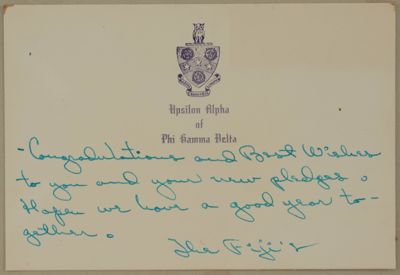 Upsilon Alpha
of
Phi Gamma Delta
-Congradulations and Best Wishes
to you and your new pledges.
Hope we have a good year to-
gether.
The Fiji's